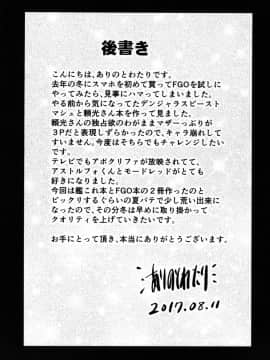 後書き
こんにちは、ありのとわたりです。
去年の冬にスマホを初めて買ってFGOを試しに
やってみたら、見事にハマってしまいました。
やる前から気になってたデンジャラスビースト
マシュと頼光さん本を作って見ました。
頼光さんの独占欲のわがままマザーっぷりが
3Pだと表現しずらかったので、キャラ崩れして
すいません。今度はそちらでもチャレンジしたい
です。
テレビでもアポクリファが放映されてて、
アストルフォくんとモードレッドがとても
好きになりました。
今回は艦これ本とFGO本の2冊作ったのと
ビックリするぐらいの夏バテで少し荒い出来に
なったので、その分冬は早めに取り掛かって
クオリティを上げていきたいです。
お手にとって頂き、本当にありがとうございます。
ありのとわたり
2017.08.11